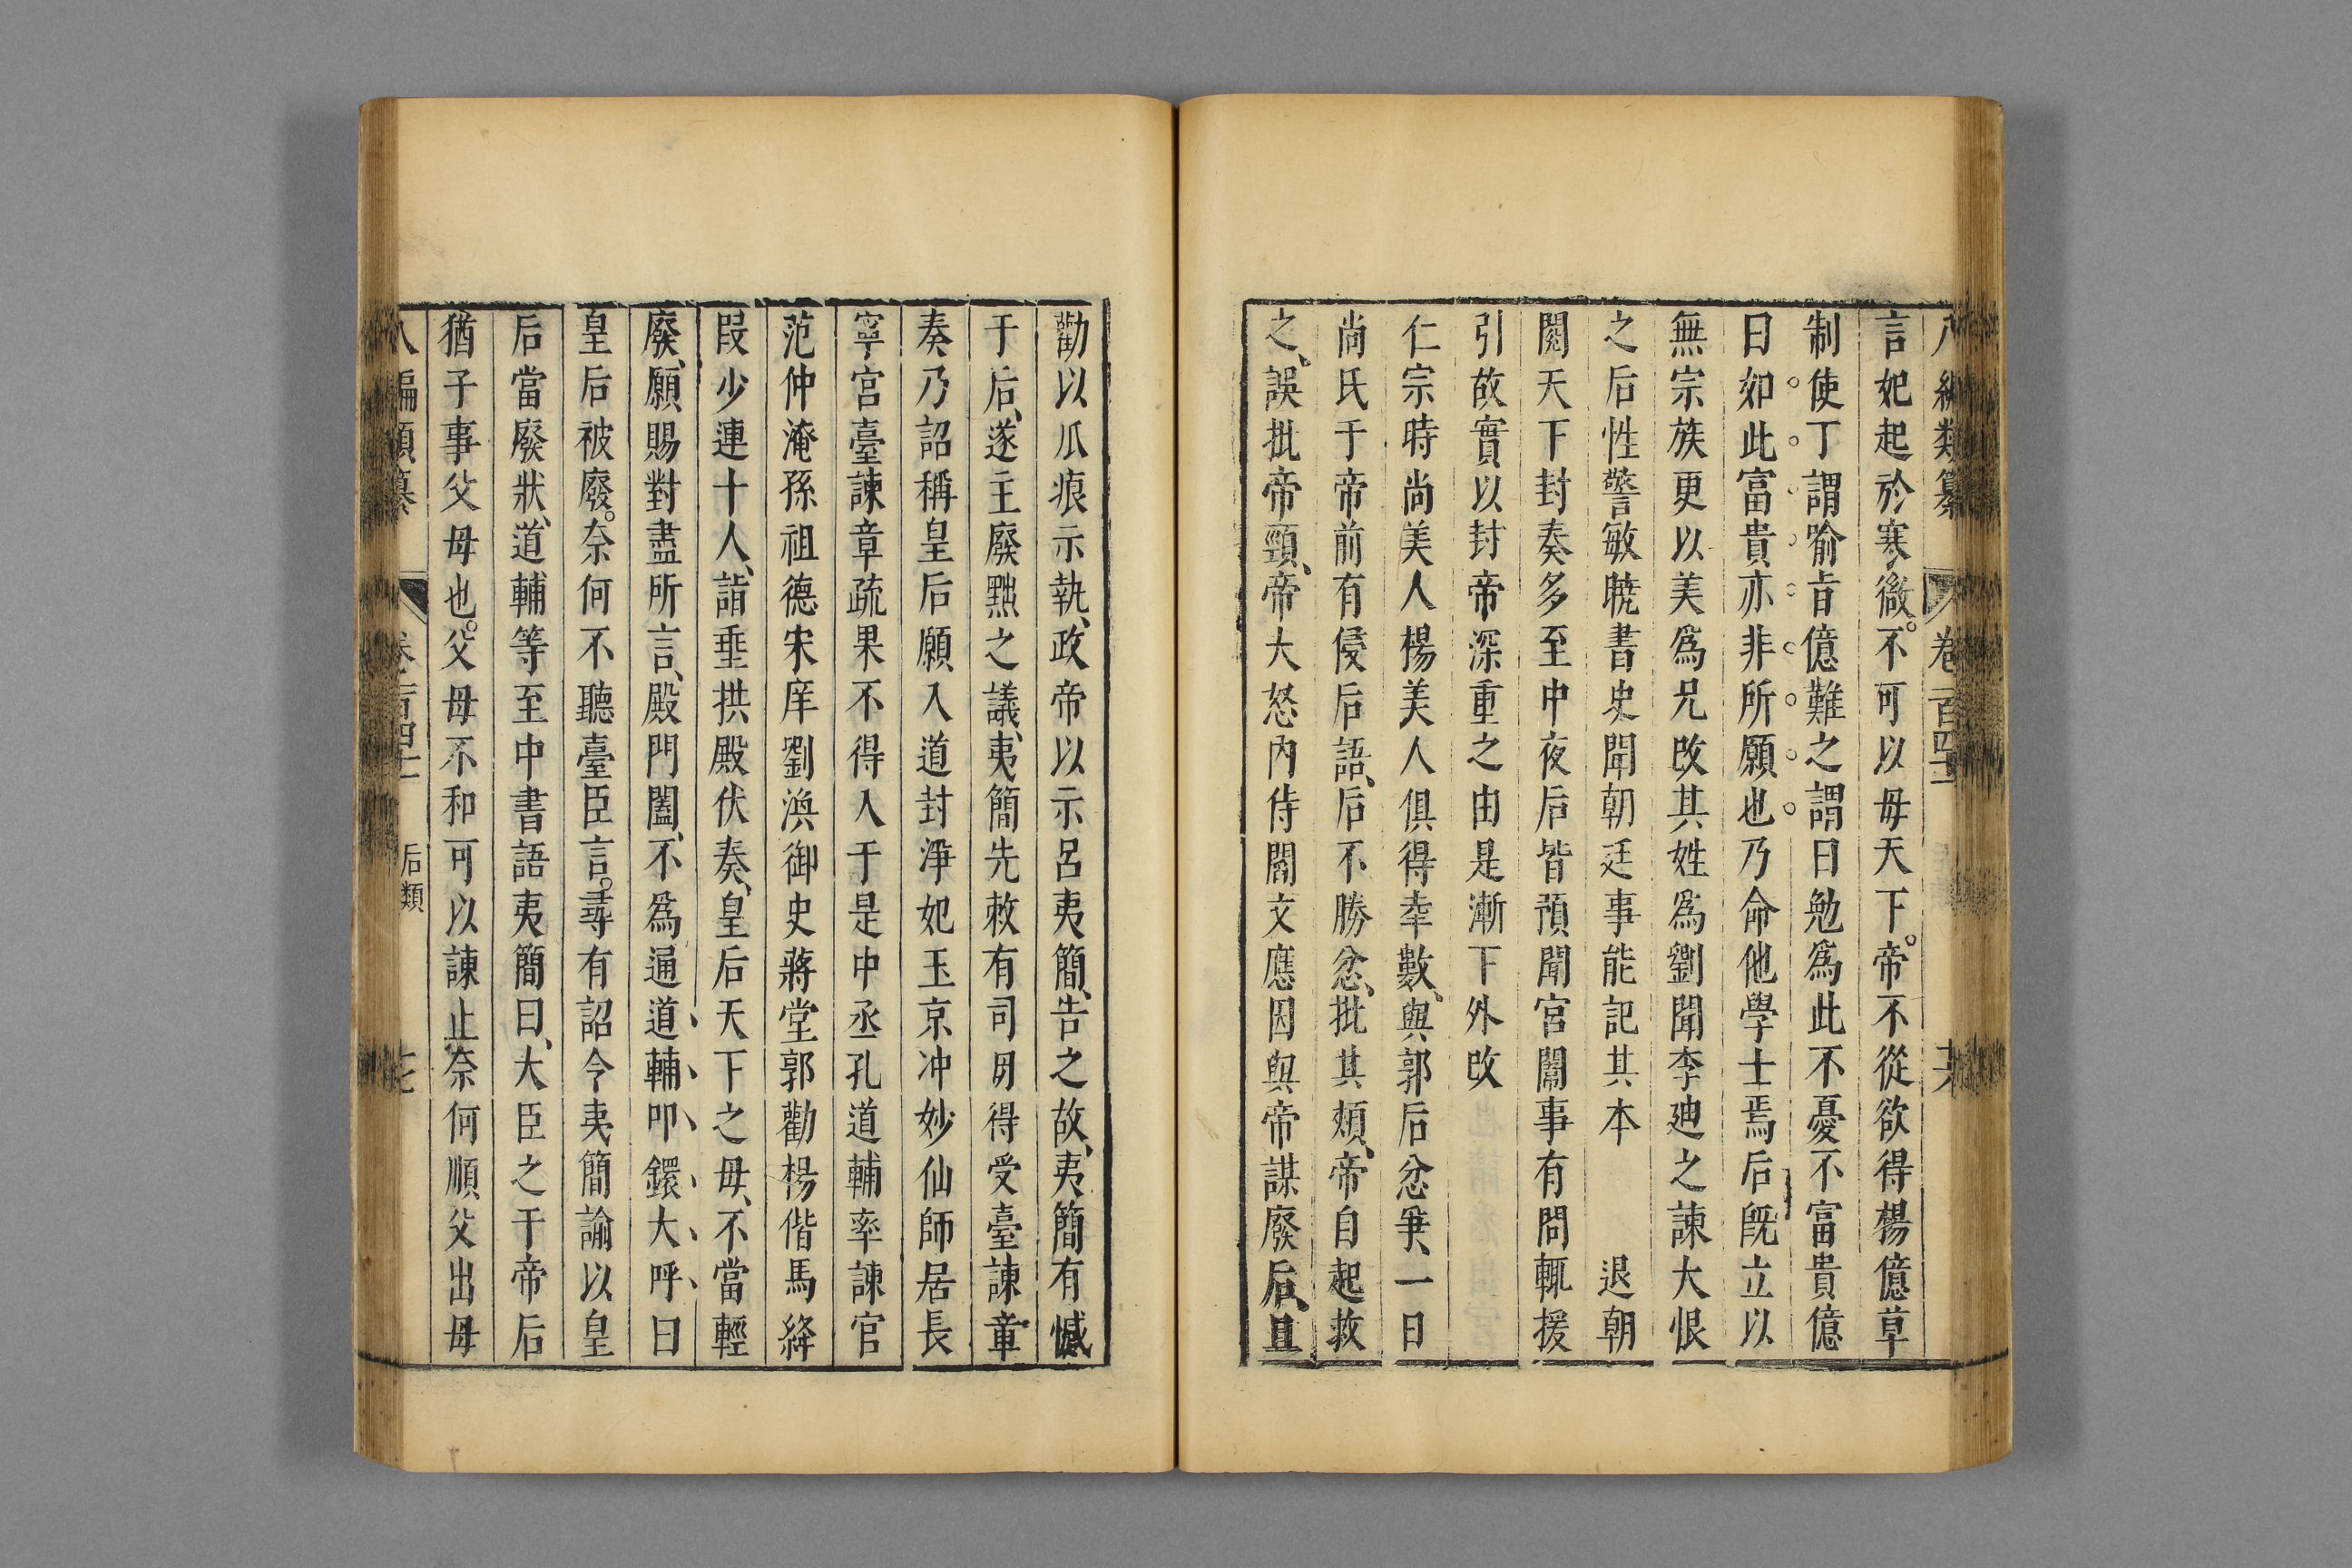 八編類纂 卷一百四十一
言妃起於寒微。不可以母天下。帝不從欲得楊億草
制使丁謂喻旨億難之謂曰勉爲此不憂不富貴億
曰如此富貴亦非所願也乃命他學士焉后既立以
無宗族更以美爲兄改其姓爲劉聞李迪之諫大恨
之后性警敏曉書史聞朝廷事能記其本 退朝
閱天下封奏多至中夜后皆預聞宮闈事有問輒援
引故實以封帝深重之由是漸下外政
仁宗時尚美人楊美人俱得幸數、與郭后忿爭、一日
尚氏于帝前有侵后語、后不勝忿、批其頰、帝自起救
之、誤批帝頸、帝大怒内侍閻文應因與帝謀廢后、且
勸以爪痕示執、政帝以示呂夷簡、告之故、夷簡有憾
于后、遂主廢黜之議、夷簡先敕有司毋得受臺諫章
奏乃詔稱皇后願入道封淨妃玉京冲妙仙師居長
寧宮臺諫章疏果不得入于是中丞孔道輔率諫官
范仲淹孫祖德宋庠劉渙御史蔣堂郭勸楊偕馬絳
段少連十人、詣垂拱殿伏奏、皇后天下之母、不當輕
廢、願賜對盡所言、殿門闔、不爲通道輔叩鐶大呼曰
皇后被廢。奈何不聽臺臣言。尋有詔令夷簡諭以皇
后當廢狀、道輔等至中書語夷簡曰、大臣之于帝后
猶子事父母也。父母不和可以諫止奈何順父出母
八編類纂 卷一百四十一 后類